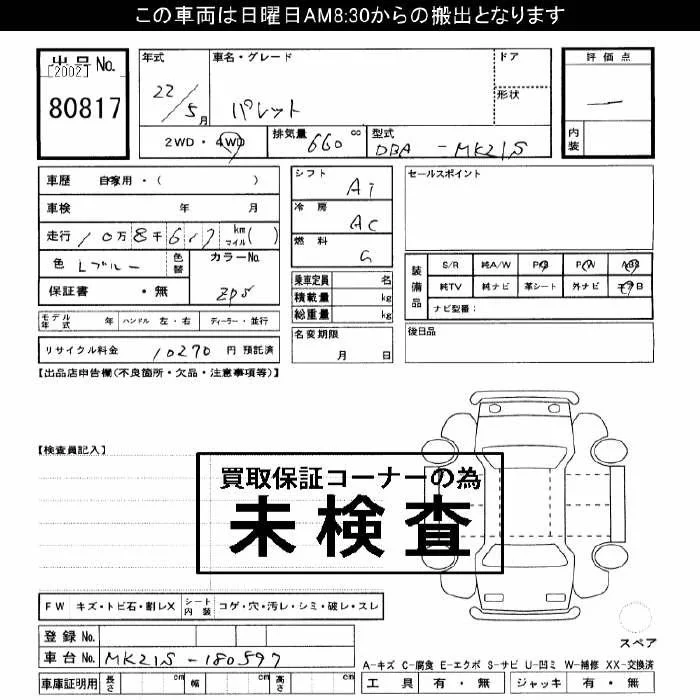 この車両は日曜日AM8:30からの搬出となります
出品No.
[2002]
80817
年式 22/5月
車名・グレード パレット
ドア
形状
評価点 —
内装
2WD・4WD
排気量 660 cc
型式 DBA - MK21S
車歴 自家用・( )
車検 年 月
走行 10万8千617 km マイル( )
色 Lブルー 色替
カラーNo. ZP5
保証書 ・無
モデル年式 年 ハンドル 左・右 ディーラー・並行
リサイクル料金 10270 円 預託済
シフト AT
冷房 AC
燃料 G
乗車定員 名
積載量 kg
総重量 kg
名変期限 月 日
セールスポイント
装備品 S/R 純A/W P/S P/W ABS
純TV 純ナビ 革シート 外ナビ エアB
ナビ型番:
後日品
【出品店申告欄(不良箇所・欠品・注意事項等)】
【検査員記入】
買取保証コーナーの為
未検査
FW キズ・トビ石・割レX シート内装 コゲ・穴・汚レ・シミ・破レ・スレ
登録No.
車台No. MK21S-180597
車庫証明用 長さ cm 幅 cm 高さ cm
スペア
A-キズ C-腐食 E-エクボ S-サビ U-凹ミ W-補修 XX-交換済
工具 有・無 ジャッキ 有・無